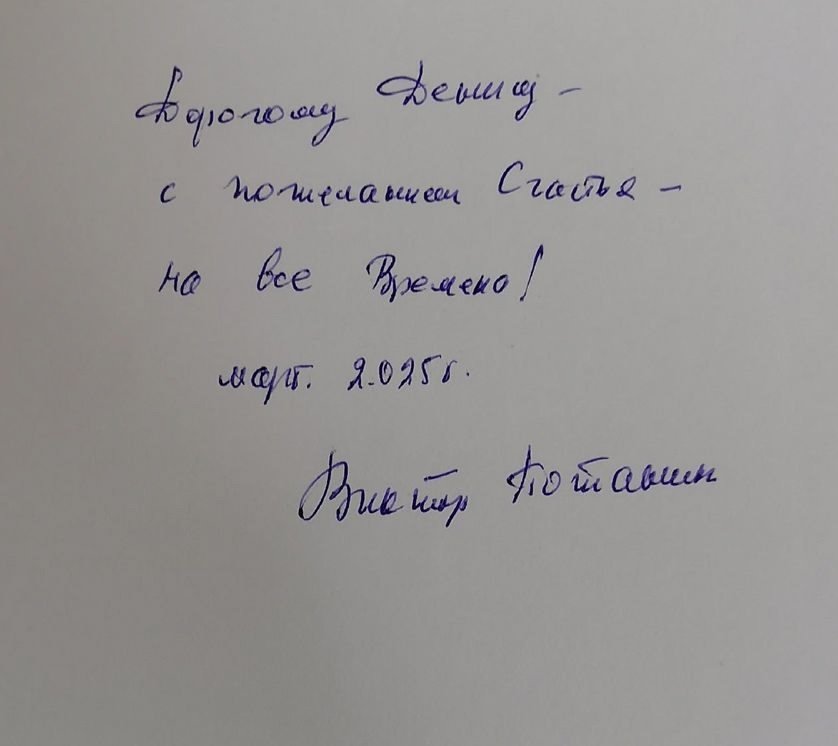 Дорогому Денису –
с пожеланием Счастья –
на все Времена!
март. 2.025 г.
Виктор Потанин